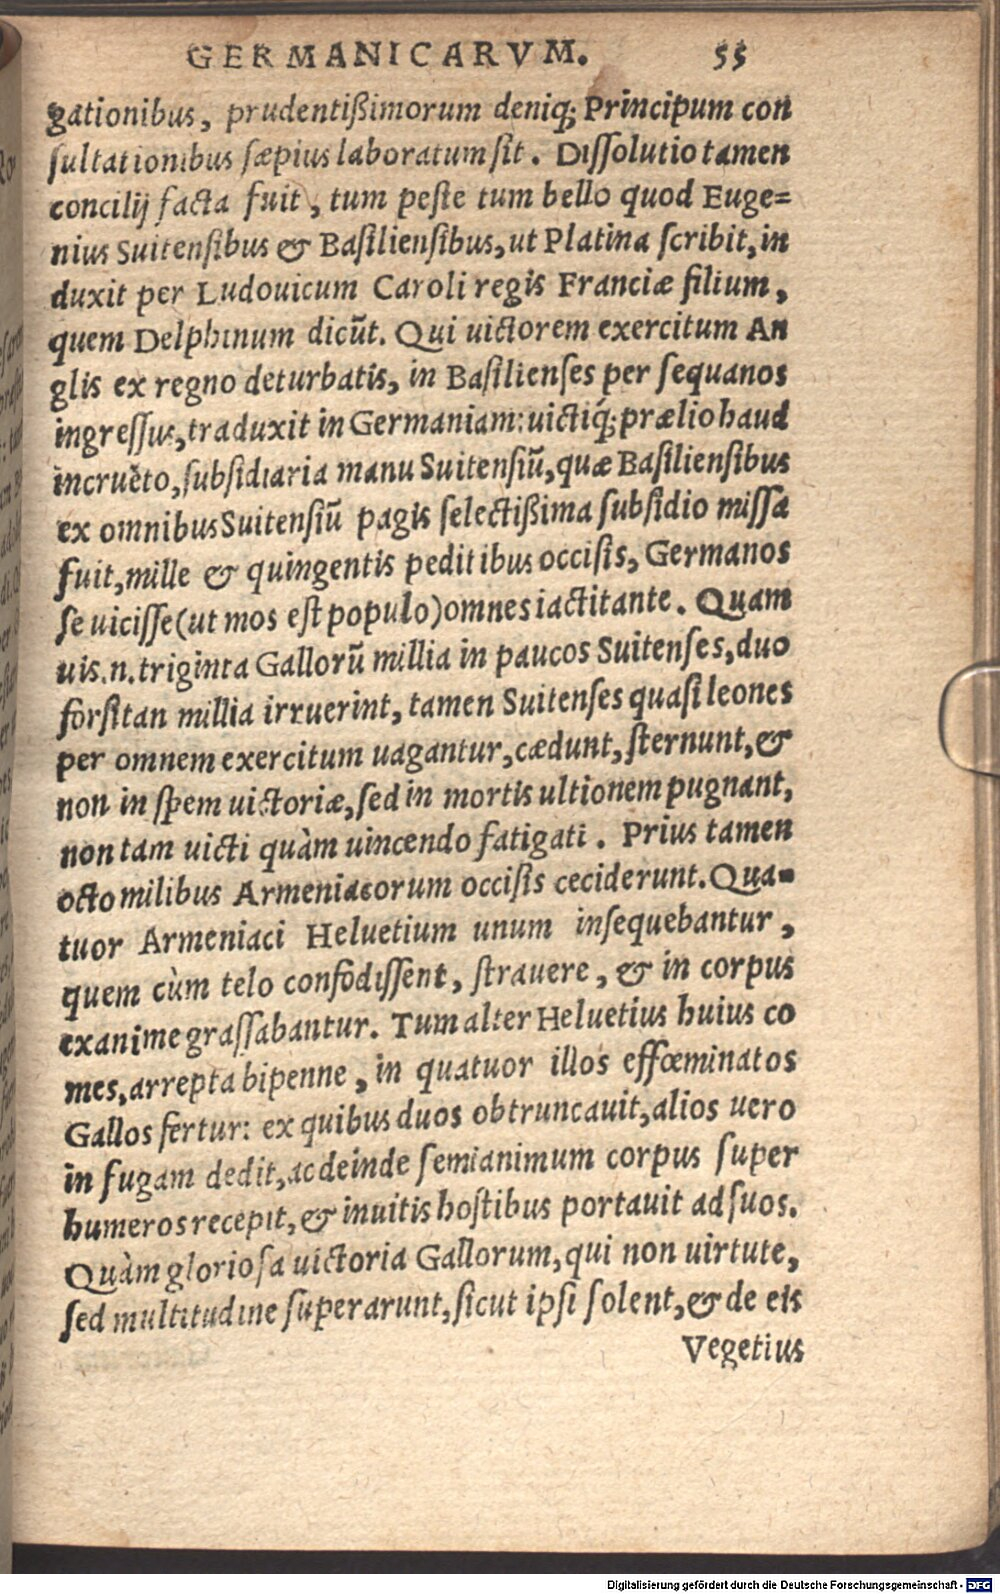 GERMANICARVM. 55
gationibus, prudentißimorum deniq; Principum con
sultationibus sæpius laboratum sit. Dissolutio tamen
concilij facta fuit, tum peste tum bello quod Euge=
nius Suitensibus & Basiliensibus, ut Platina scribit, in
duxit per Ludouicum Caroli regis Franciæ filium,
quem Delphinum dicūt. Qui uictorem exercitum An
glis ex regno deturbatis, in Basilienses per sequanos
ingressus, traduxit in Germaniam: uictiq́; prælio haud
incruēto, subsidiaria manu Suitensiū, quæ Basiliensibus
ex omnibus Suitensiū pagis selectißima subsidio missa
fuit, mille & quingentis peditibus occisis, Germanos
se uicisse (ut mos est populo) omnes iactitante. Quam
uis.n. triginta Gallorū millia in paucos Suitenses, duo
forsitan millia irruerint, tamen Suitenses quasi leones
per omnem exercitum uagantur, cædunt, sternunt, &
non in spem uictoriæ, sed in mortis ultionem pugnant,
non tam uicti quàm uincendo fatigati. Prius tamen
octo milibus Armeniacorum occisis ceciderunt. Qua-
tuor Armeniaci Heluetium unum insequebantur,
quem cùm telo confodissent, strauere, & in corpus
exanime grassabantur. Tum alter Heluetius huius co
mes, arrepta bipenne, in quatuor illos effœminatos
Gallos fertur: ex quibus duos obtruncauit, alios uero
in fugam dedit, ac deinde semianimum corpus super
humeros recepit, & inuitis hostibus portauit ad suos.
Quàm gloriosa uictoria Gallorum, qui non uirtute,
sed multitudine superarunt, sicut ipsi solent, & de eis
Vegetius
Digitalisierung gefördert durch die Deutsche Forschungsgemeinschaft - DFG